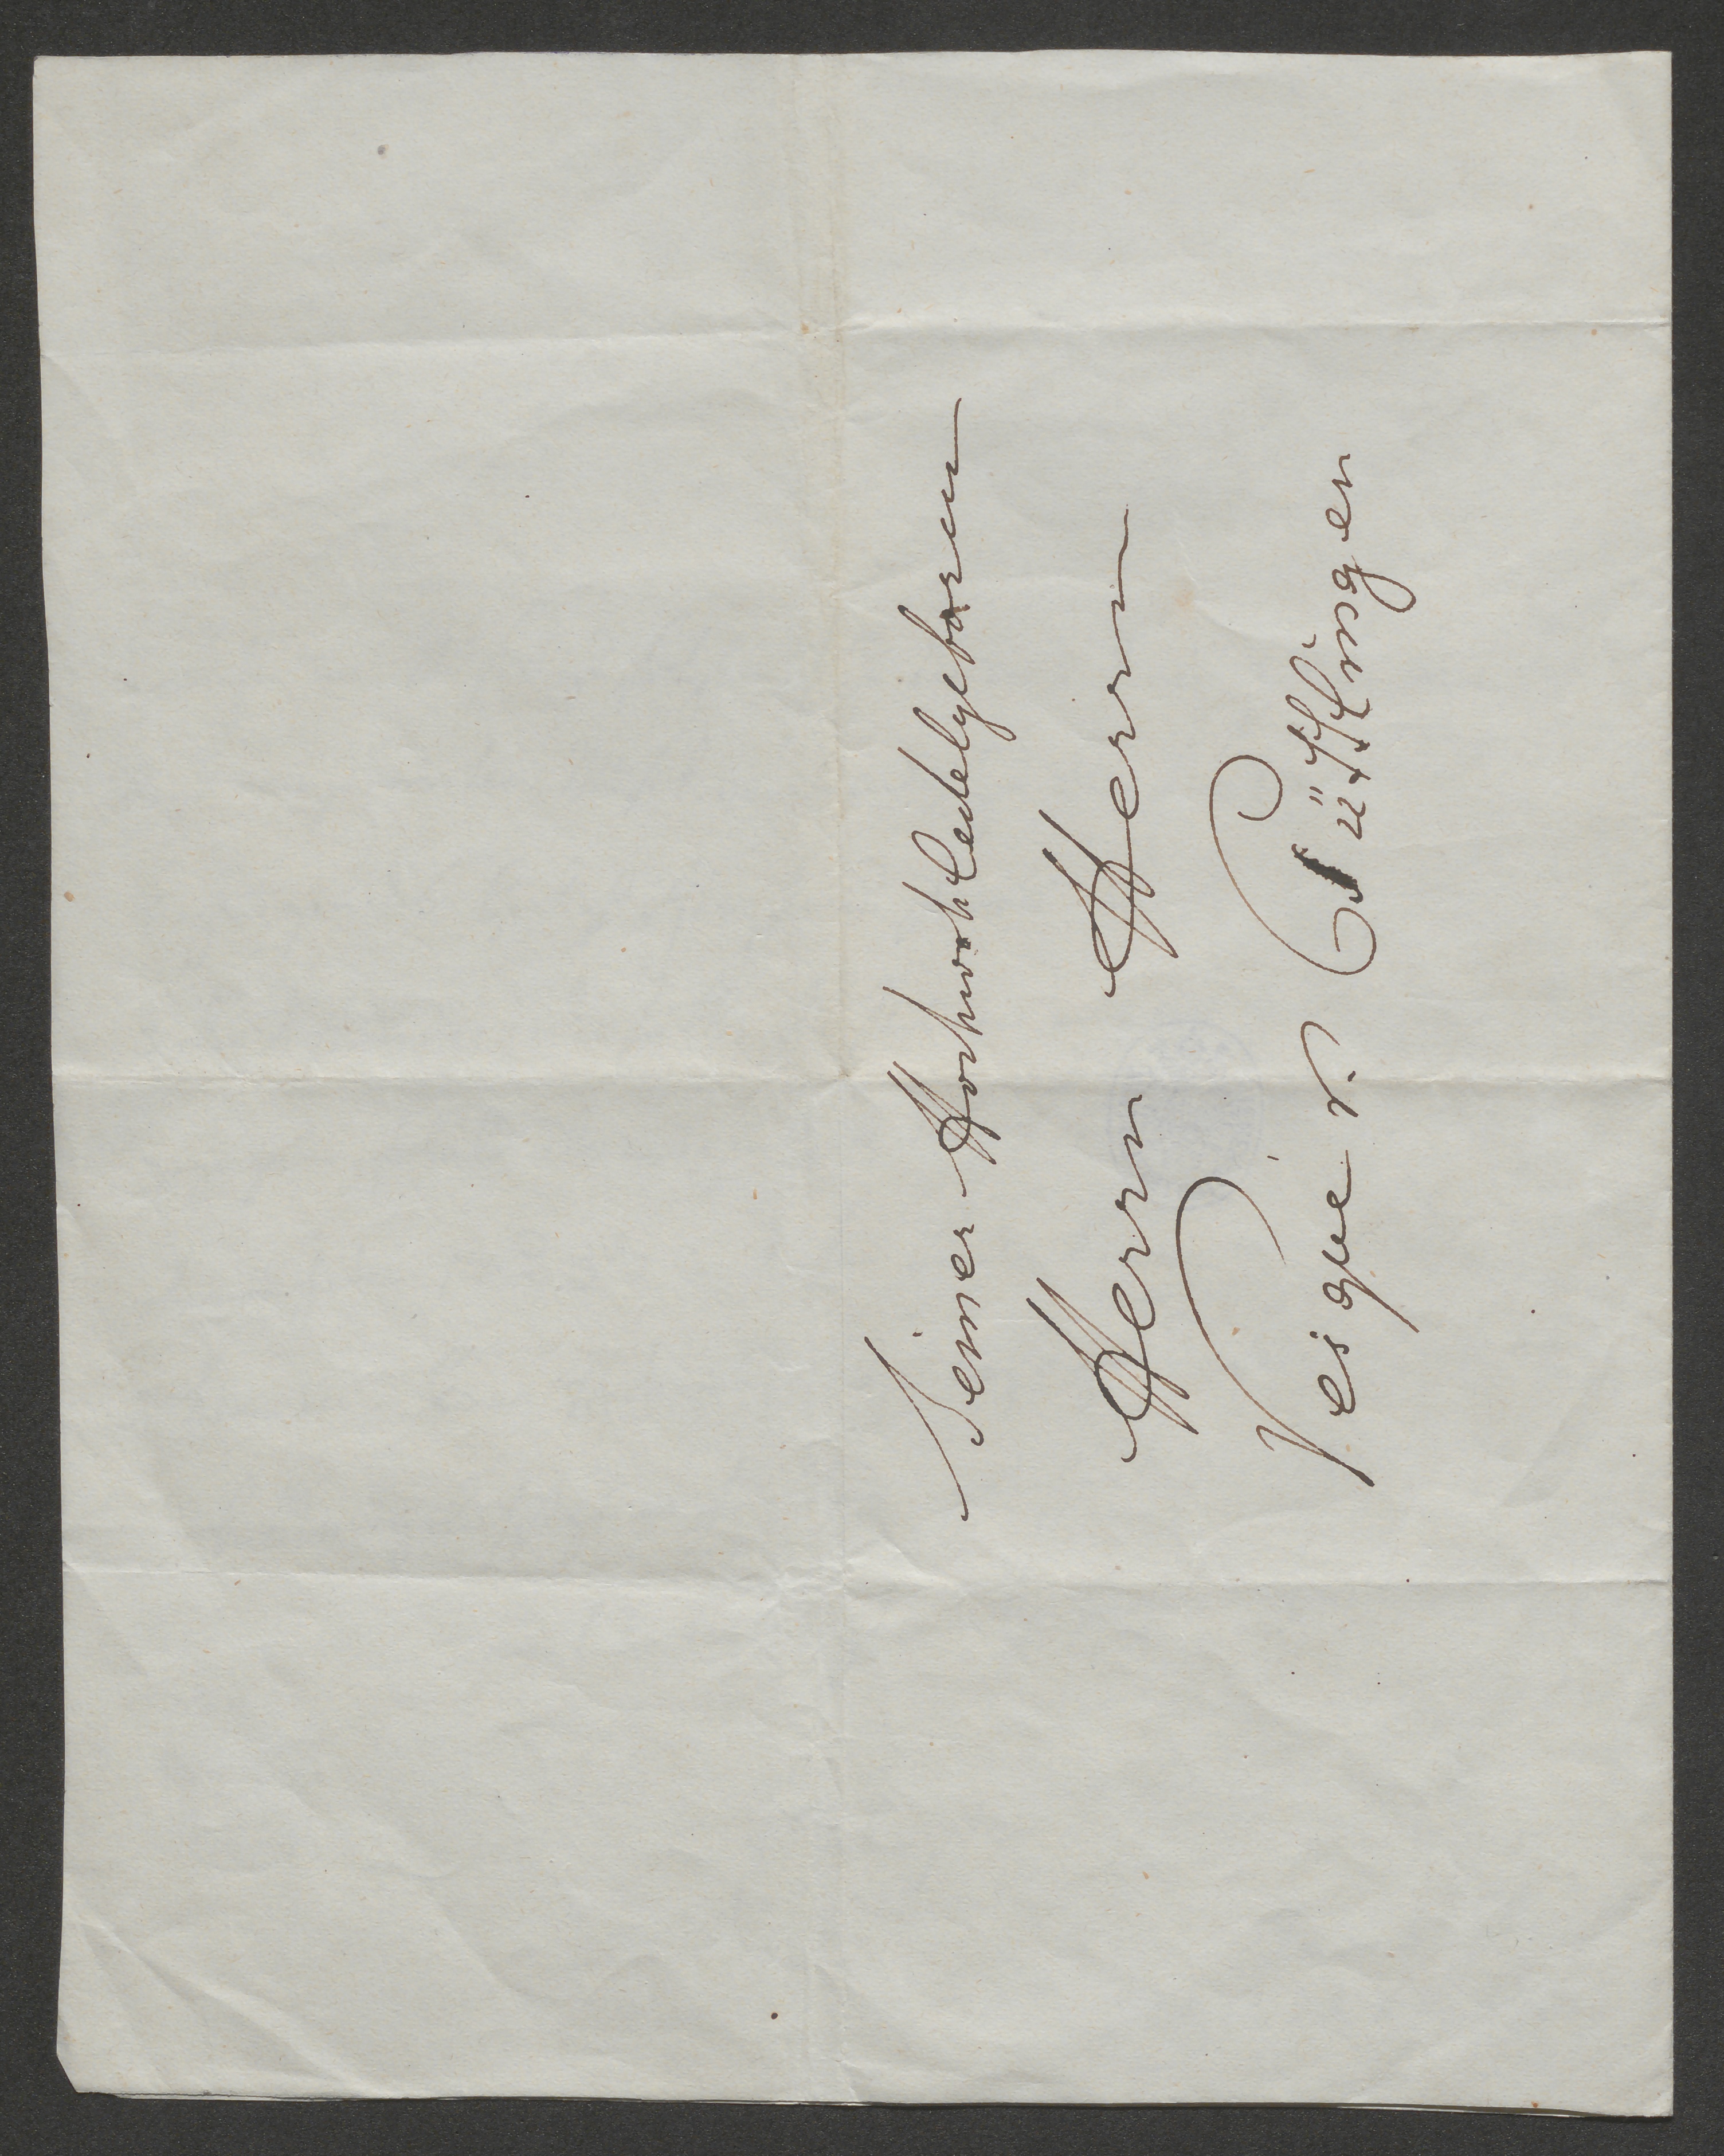 Seiner Hochwohledelgeboren
Herrn Herrn
Vesque v. Püttlingen